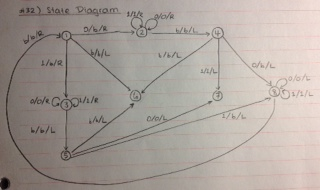 #32) State Diagram
b/b/R
1
0/b/R
1/1/R
2
0/0/R
b/b/L
4
1/b/R
b/b/L
b/b/L
1/1/L
0/b/L
0/0/R
3
1/1/R
6
7
8
0/0/L
1/1/L
b/b/L
b/b/L
0/0/L
1/b/L
5